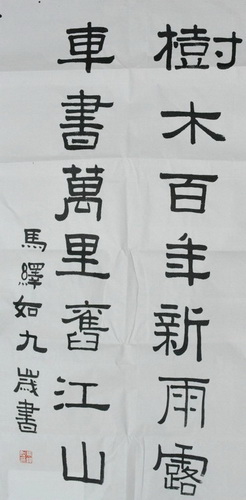 樹木百年新雨露
車書萬里舊江山
馬繹如九歲書